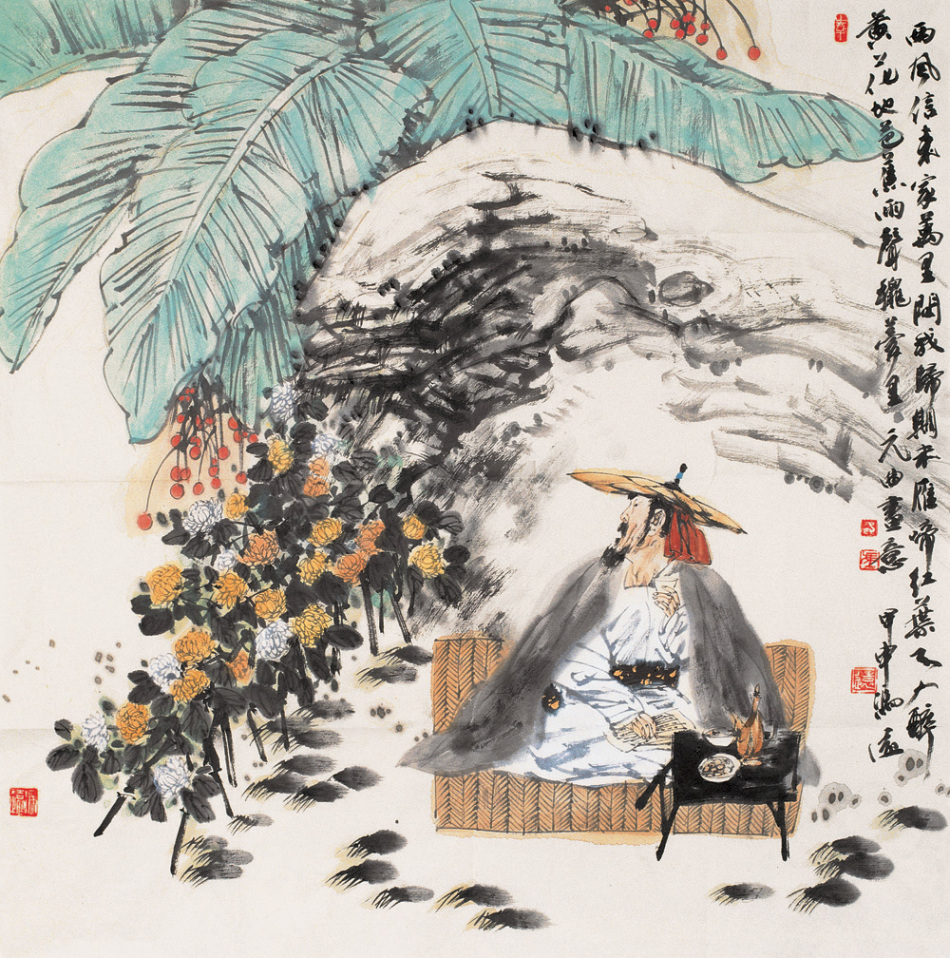 西風信来家萬里問我歸期未雁啼紅葉天人醉
黄花地芭蕉雨聲龝夢里 元曲畫意 甲申